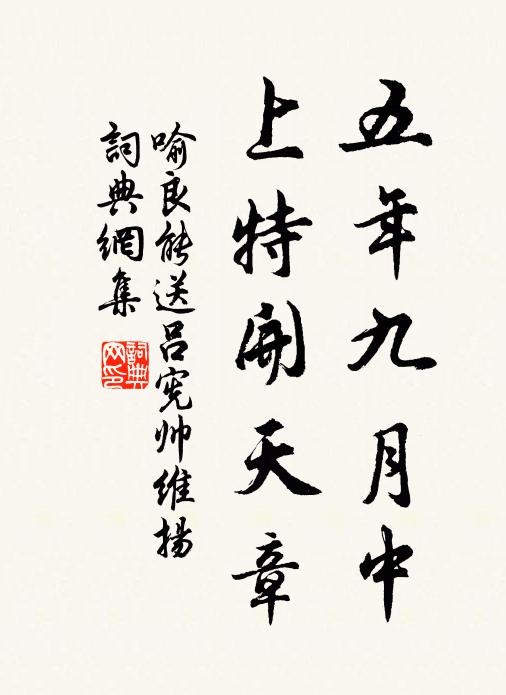 五年九月中
上特開天章
喻良能送呂憲帅維揚
詞典網集
詞典
网印